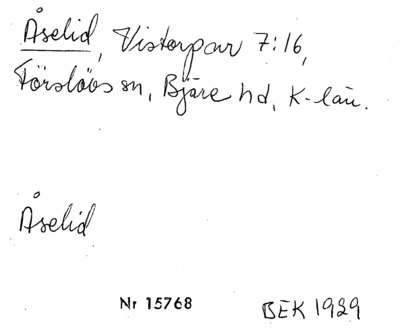 Åselid, Vistorpar 7:16,
Förslövs sn, Bjäre hd, K-län.
Åselid
Nr 15768
BEK 1929